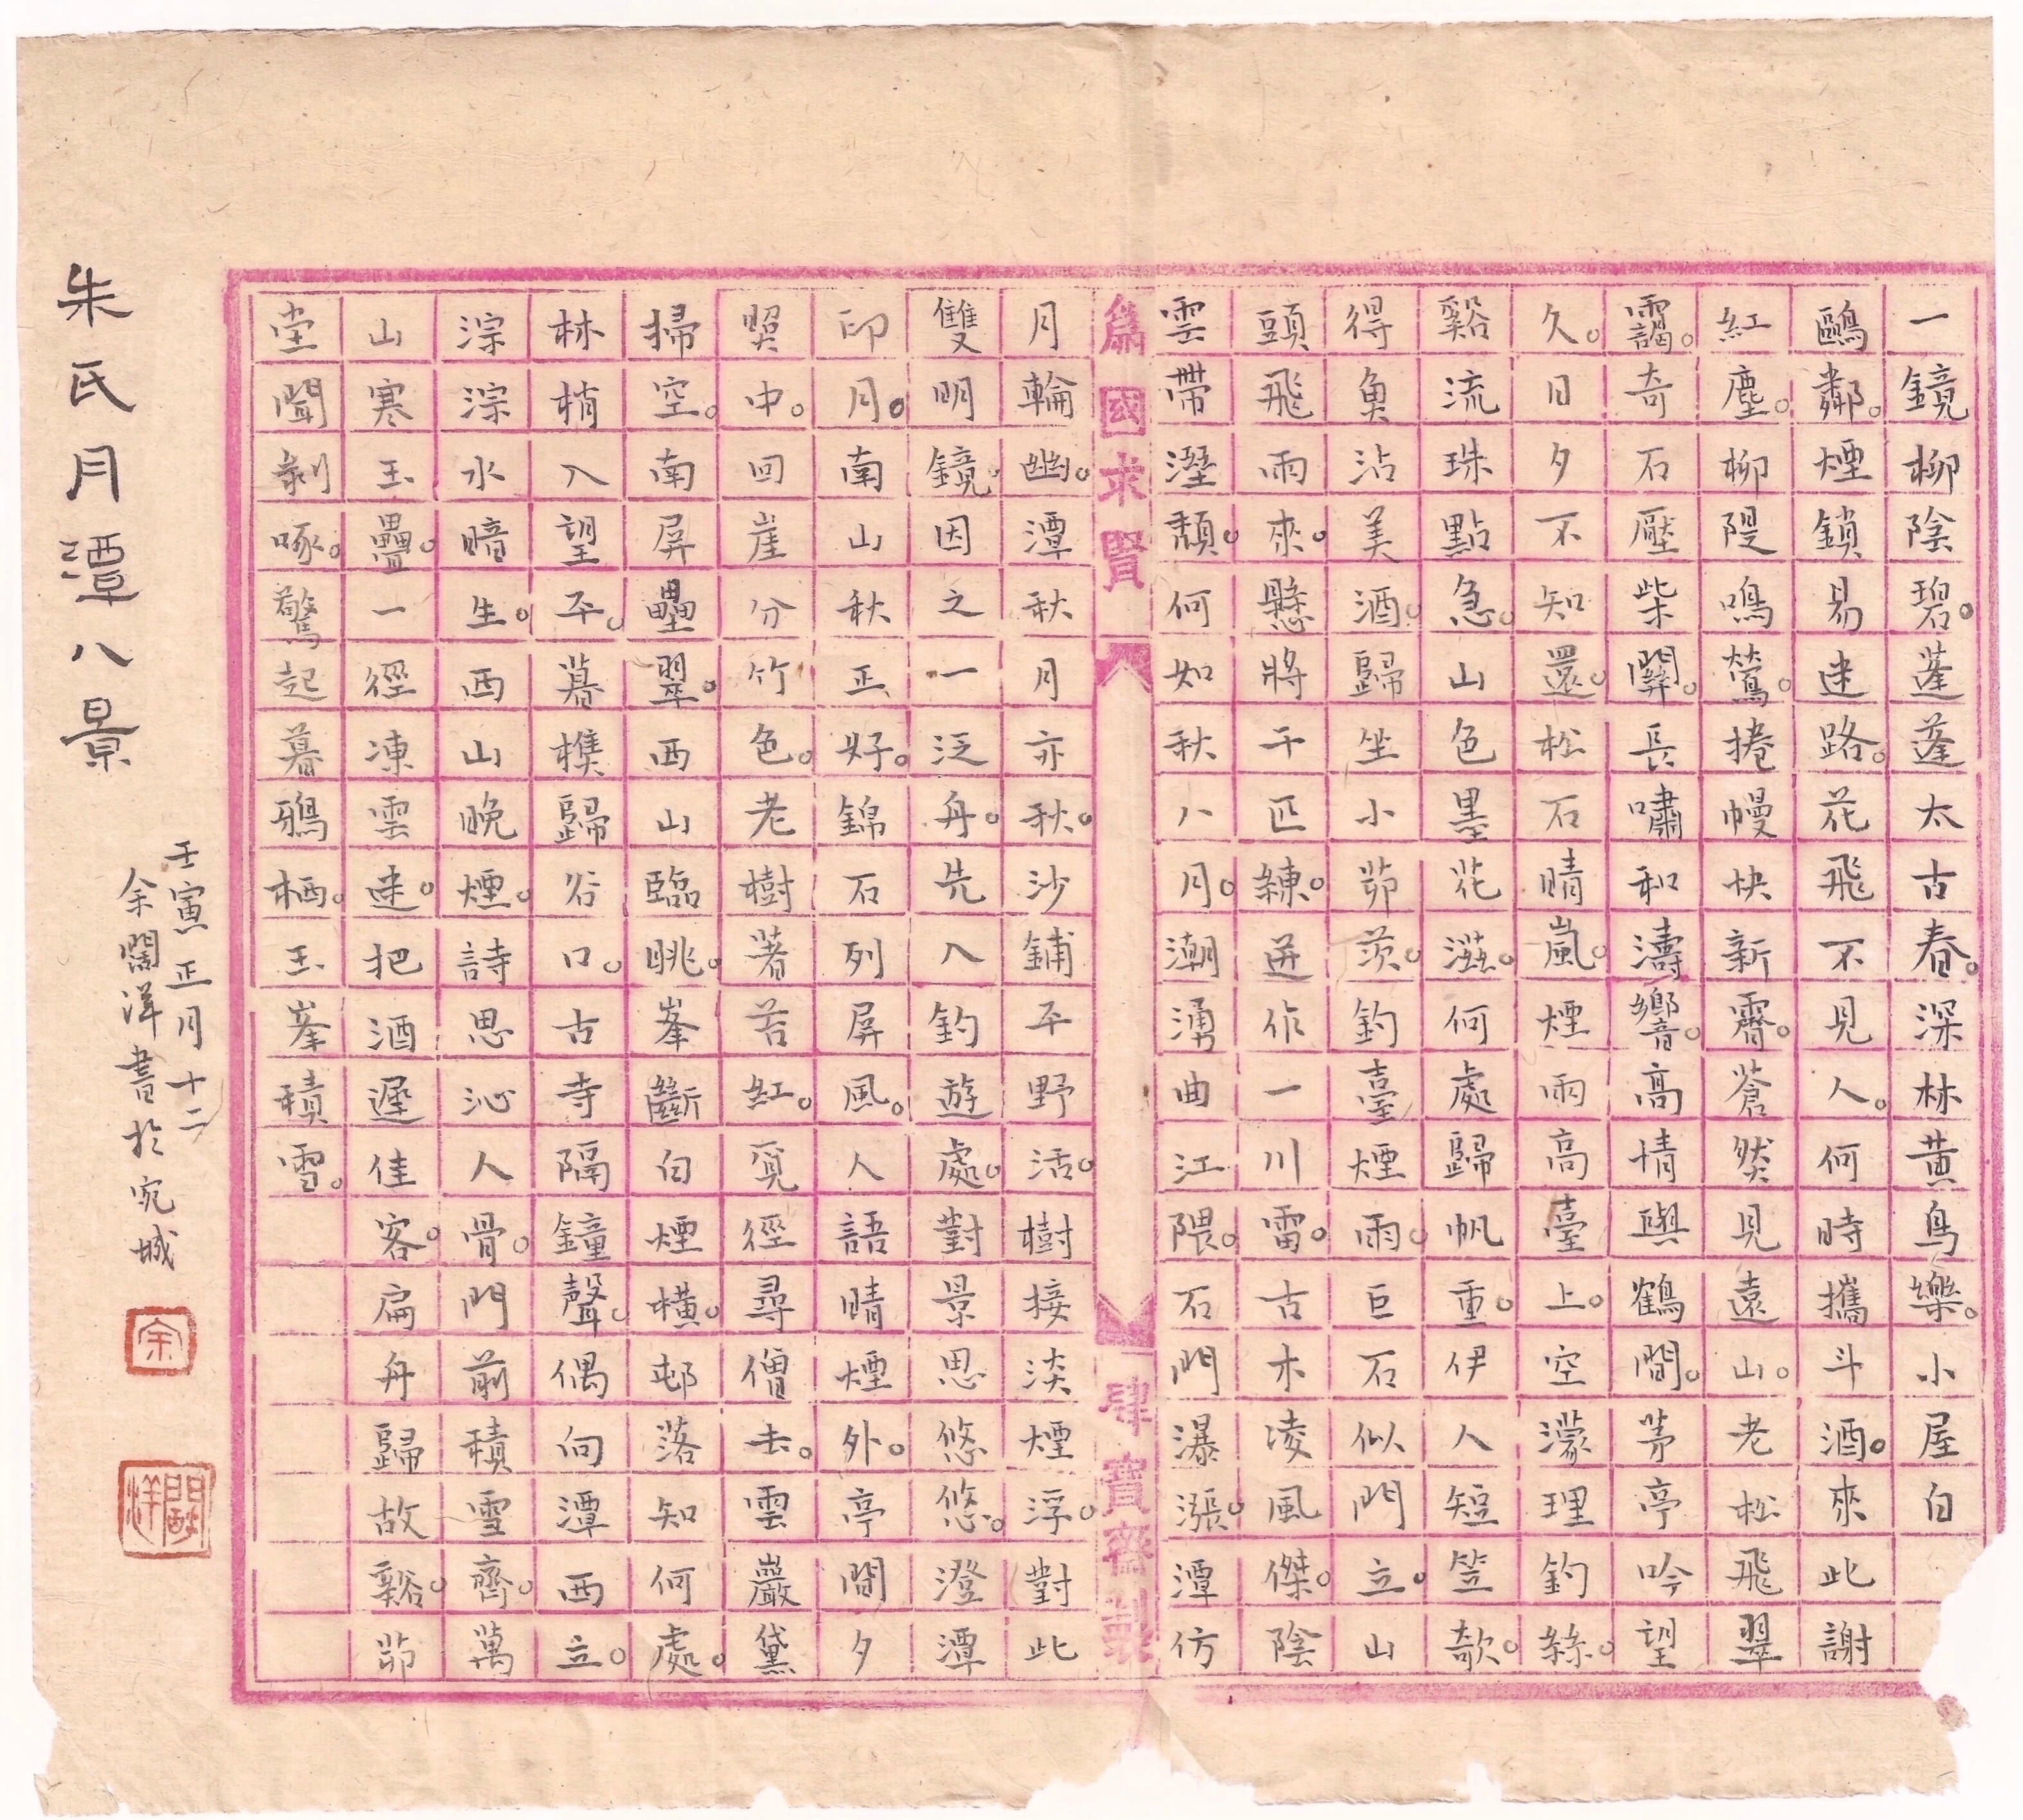 一鏡柳陰碧。蓬蓬太古春。深林黄鳥樂。小屋白
鷗鄰。煙鎖易迷路。花飛不見人。何時攜斗酒。來此謝
紅塵。柳隄鳴鶯。捲幔快新霽。蒼然見遠山。老松飛翠
靄。奇石壓柴關。長嘯和濤響。高情與鶴閒。茅亭吟望
久。日夕不知還。松石晴嵐。煙雨高臺上。空濛理釣絲。
谿流珠點急。山色墨花滋。何處歸帆重。伊人短笠欹。
得魚沽美酒。歸坐小茆茨。釣臺煙雨。巨石似門立。山
頭飛雨來。懸將千匹練。迸作一川雷。古木凌風傑。陰
雲帶溼頹。何如秋八月。潮湧曲江隈。石門瀑漲。潭仿
為國求賢
肆寶齋製
月輪幽。潭秋月亦秋。沙鋪平野活。樹接淡煙浮。對此
雙明鏡。因之一泛舟。先入釣遊處。對景思悠悠。澄潭
印月。南山秋正好。錦石列屏風。人語晴煙外。亭閒夕
照中。回崖分竹色。老樹著苔紅。覓徑尋僧去。雲巖黛
掃空。南屏疊翠。西山臨眺。峯斷白煙橫。邨落知何處。
林梢入望平。暮樵歸谷口。古寺隔鐘聲。偶向潭西立。
淙淙水暗生。西山晚煙。詩思沁人骨。門前積雪齊。萬
山寒玉疊。一徑凍雲迷。把酒遲佳客。扁舟歸故谿。茆
堂聞剝啄。驚起暮鴉栖。玉峯積雪。
朱氏月潭八景
壬寅正月十二
余闊洋書於宛城
余
闊洋